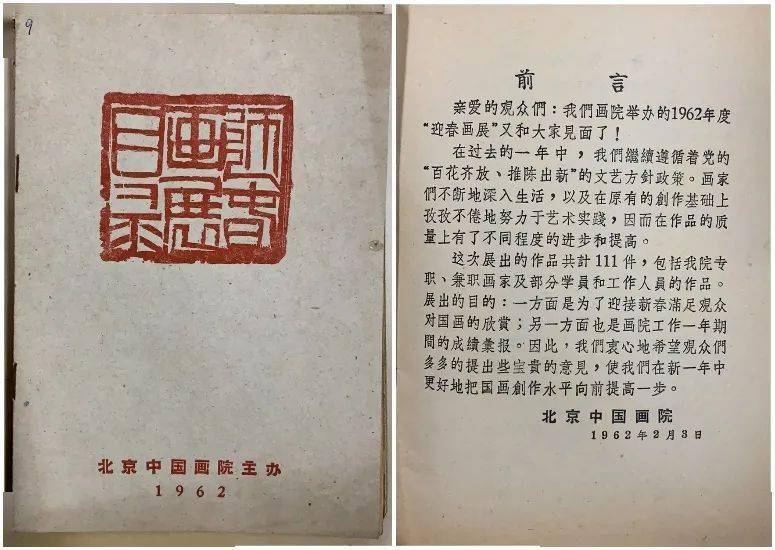 9
迎春
画展
目录
北京中国画院主办
1962
前言
亲爱的观众們：我們画院举办的1962年度
“迎春画展”又和大家見面了！
在过去的一年中，我們繼續遵循着党的
“百花齐放、推陈出新”的文艺方針政策。画家
們不断地深入生活，以及在原有的創作基础上
孜孜不倦地努力于艺术实踐，因而在作品的质
量上有了不同程度的进步和提高。
这次展出的作品共計111件，包括我院专
职、兼职画家及部分学員和工作人員的作品。
展出的目的：一方面是为了迎接新春滿足观众
对国画的欣賞；另一方面也是画院工作一年期
間的成績彙报。因此，我們衷心地希望观众們
多多的提出些宝貴的意見，使我們在新一年中
更好地把国画創作水平向前提高一步。
北京中国画院
1962年2月3日